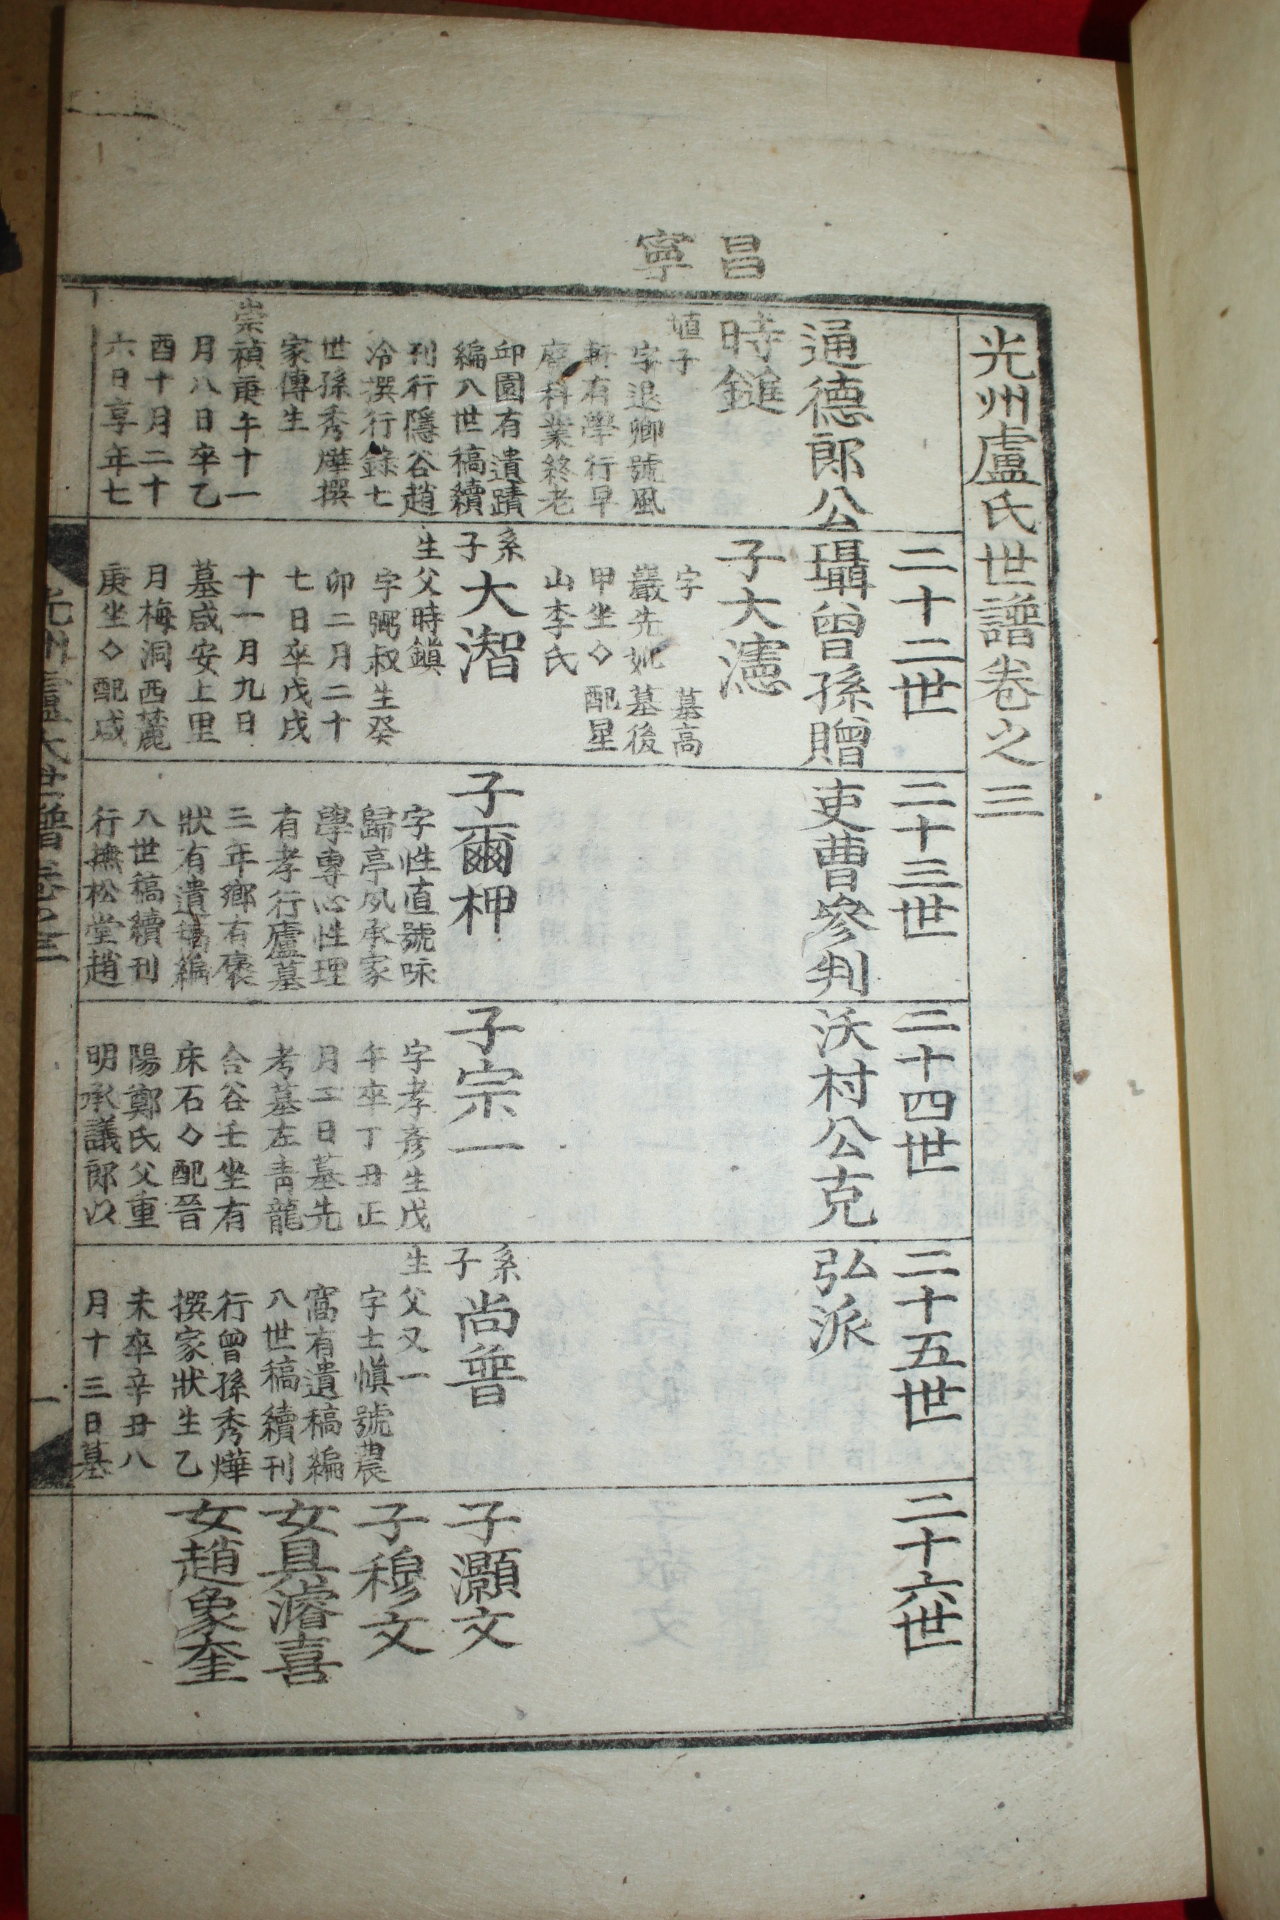 昌寧
光州盧氏世譜卷之三
二十二世
二十三世
二十四世
二十五世
二十六世
通德郎公瓃曾孫贈吏曹參判沃村公克弘派
時鎚
埴子
字退卿號風
軒有學行早
廢科業終老
邱園有遺蹟
編八世稿續
刊行隱谷趙
冷撰行錄七
世孫秀燁撰
家傳生
崇禎庚午十一
月八日卒乙
酉十月二十
六日享年七
子大濾
字 墓高
巖先妣墓後
甲坐◇配星
山李氏
系子大潪
生父時鎭
字弼叔生癸
卯二月二十
七日卒戊戌
十一月九日
墓咸安上里
月梅洞西麓
庚坐◇配咸
子爾柙
字性直號咏
歸亭夙承家
學專心性理
有孝行廬墓
三年鄉有褒
狀有遺稿編
八世稿續刊
行撫松堂趙
子宗一
字孝彥生戊
午卒丁丑正
月二日墓先
考墓左靑龍
合谷壬坐有
床石◇配晉
陽鄭氏父重
明承議郎以
系子尚普
生父又一
字士愼號農
窩有遺稿編
八世稿續刊
行曾孫秀燁
撰家狀生乙
未卒辛丑八
月十三日墓
子灝文
子穆文
女具濬喜
女趙象奎
光州盧氏世譜卷之三
一